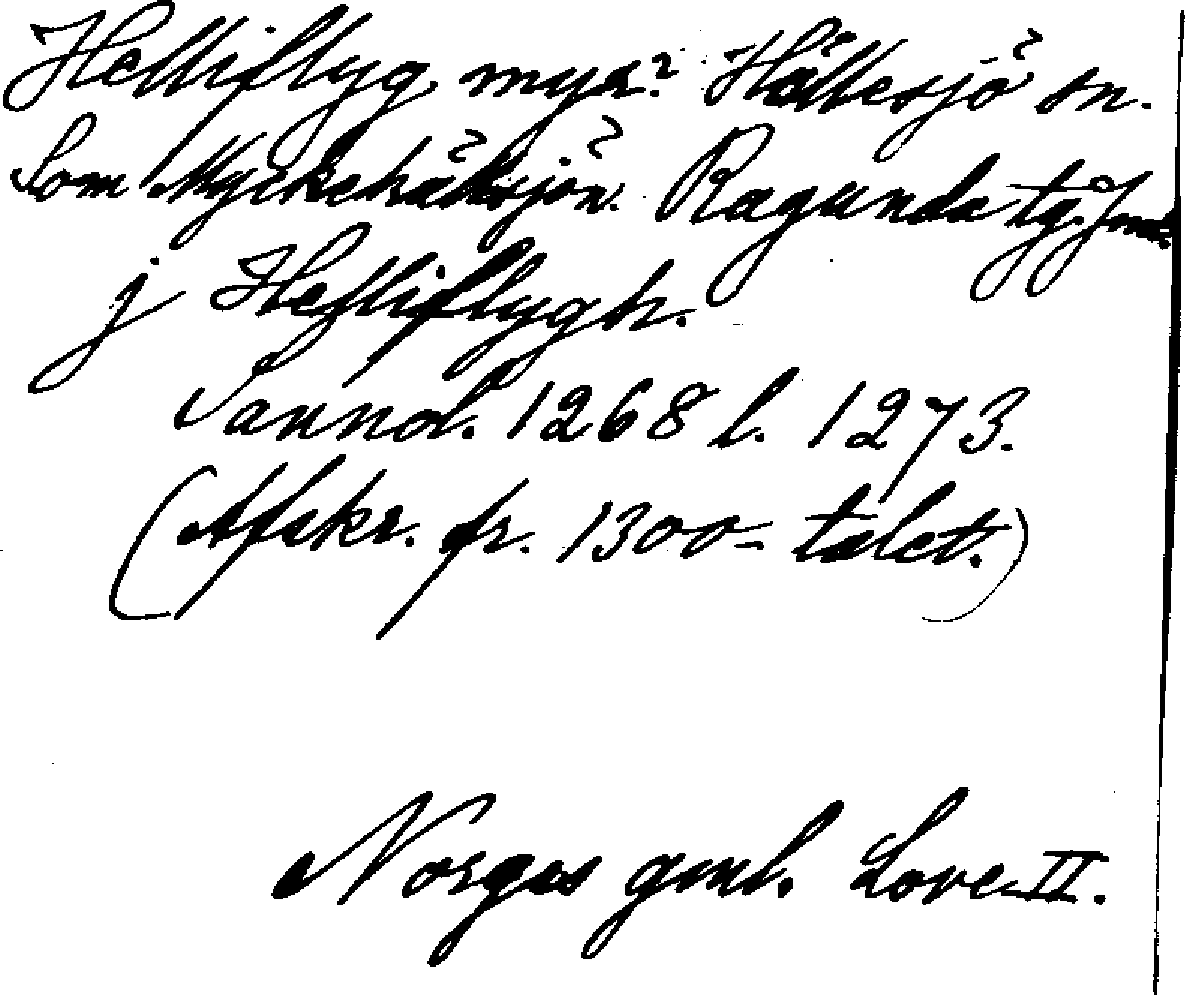 Helliflyg, myr? Hällesjö sn.
Som Myckehällsjön. Ragunda tg. Jmtl.
j Helliflygh.
Sannol. 1268 l. 1273.
(Afskr. fr. 1300-talet.)
Norges gml. Love II.